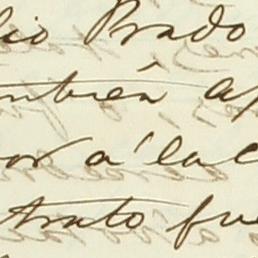 lio Prado
ambien a
or á la
trato fue